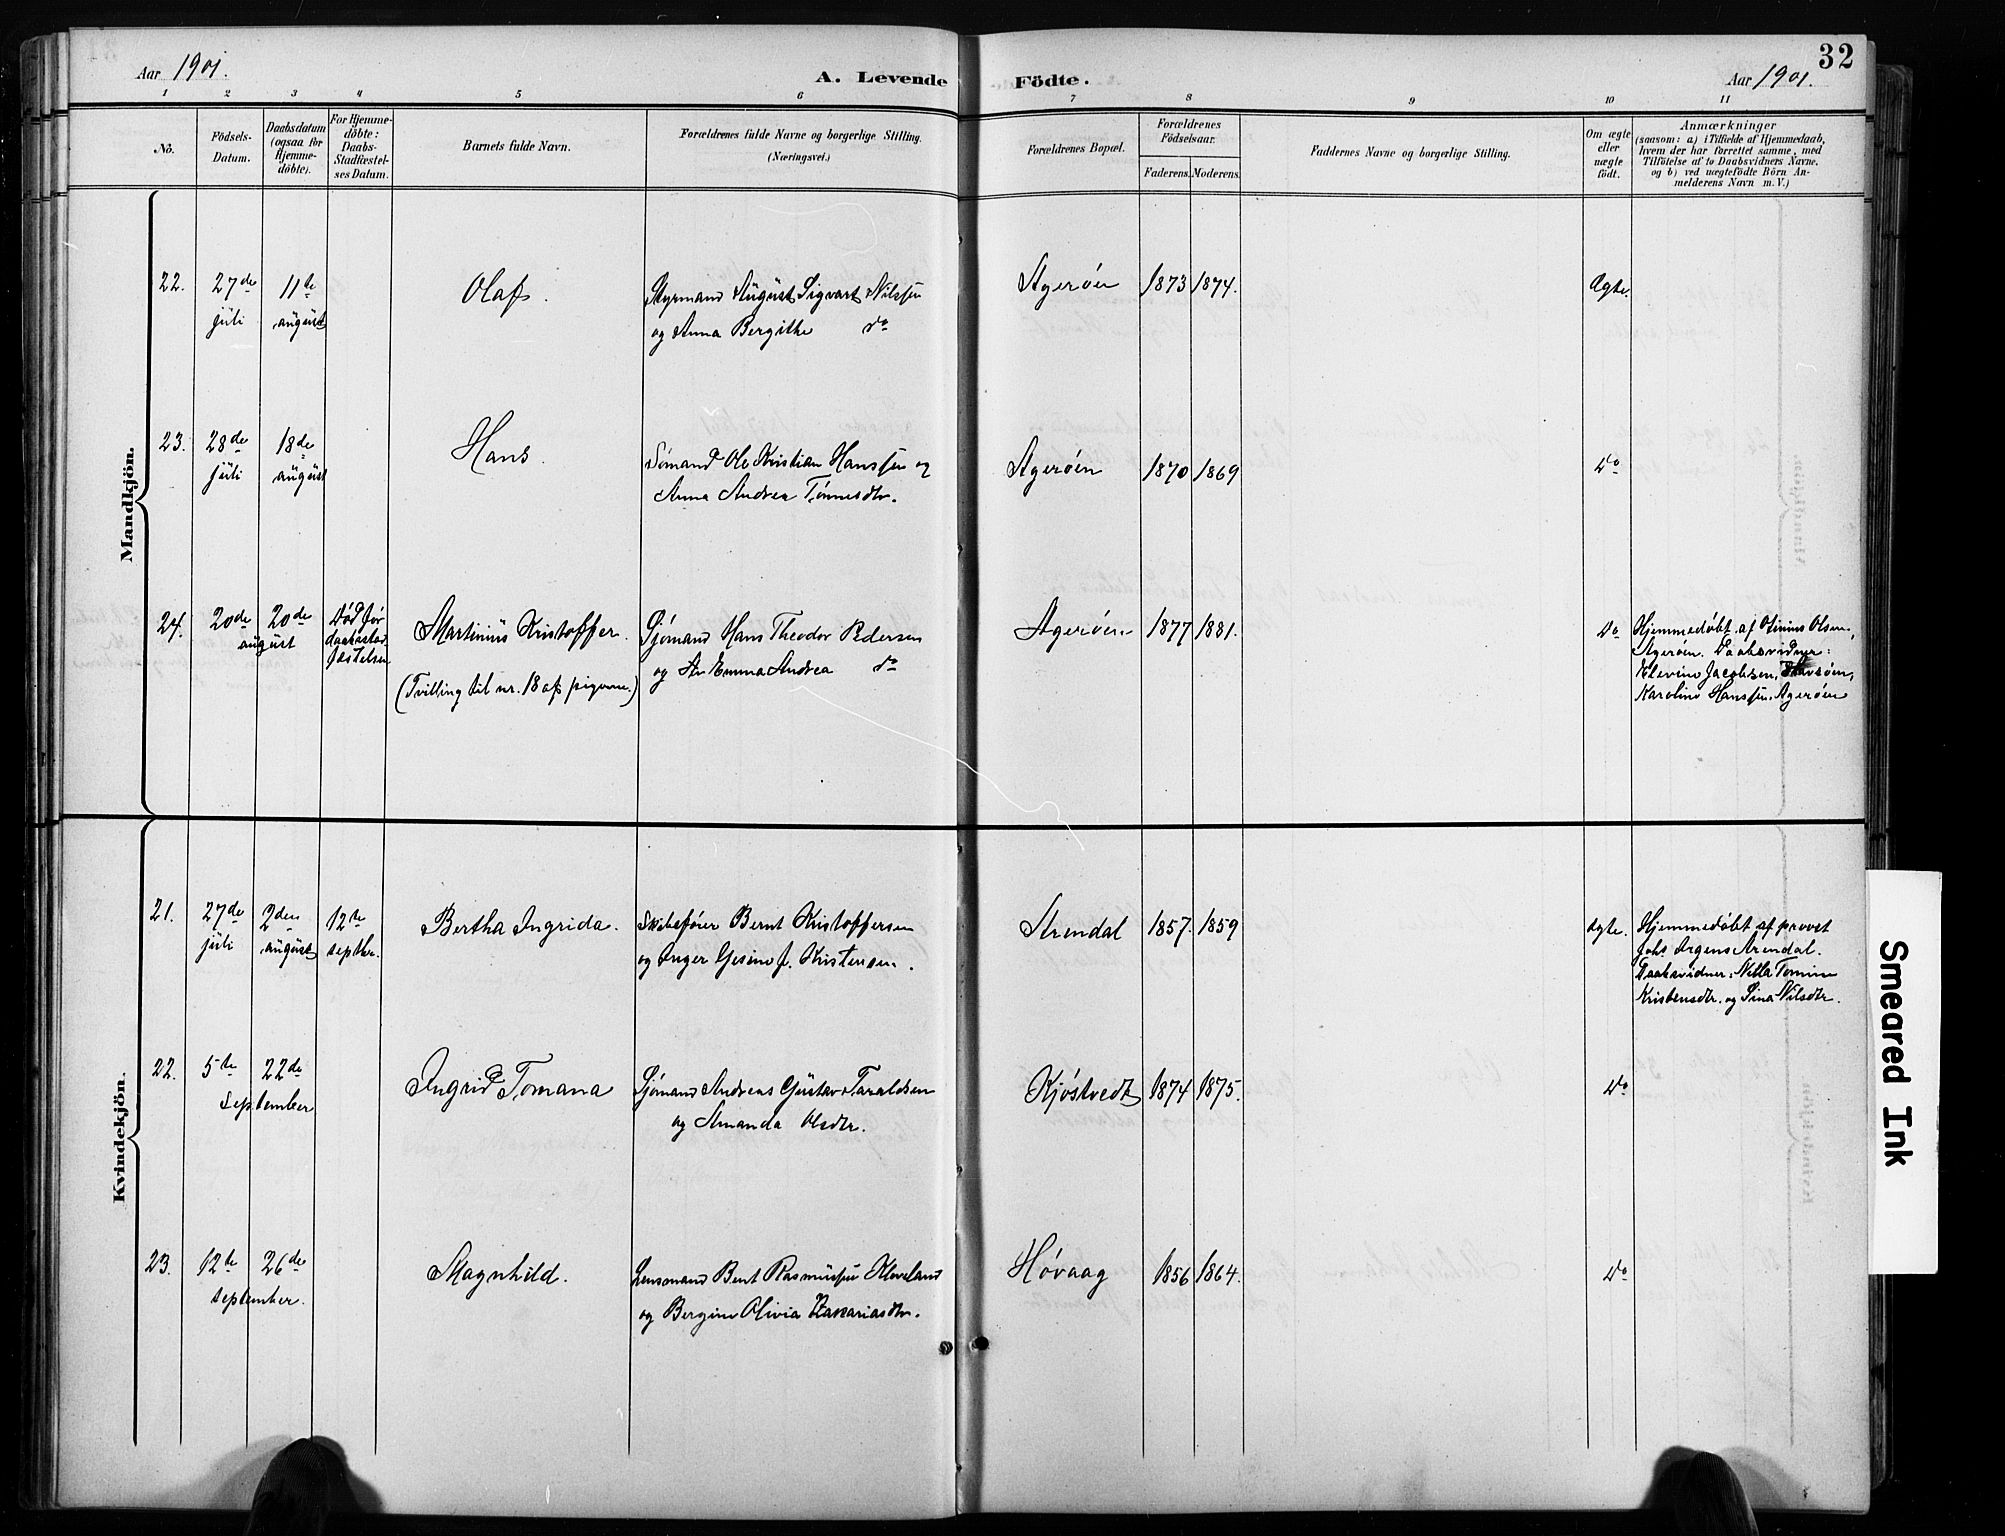 Aar 1901.
A. Levende
Födte.
Aar 1901.
32
1 2 3 4 5 6 7 8 9 10 11
No.
Födsels-
Datum.
Daabsdatum
(ogsaa for
Hjemme-
döbte).
For Hjemme-
döbte:
Daabs-
Stadfæstel-
ses Datum.
Barnets fulde Navn.
Forældrenes fulde Navne og borgerlige Stilling.
(Næringsvei.)
Forældrenes Bopæl.
Forældrenes
Födselsaar.
Faderens. Moderens.
Faddernes Navne og borgerlige Stilling.
Om ægte
eller
uægte
født.
Anmærkninger
(saasom: a) i Tilfælde af Hjemmedaab,
hvem der har forrettet samme, med
Tilföielse af to Daabsvidners Navne,
og b) ved uægtefödte Börn An-
melderens Navn m. V.)
Mandkjön.
22. 27de 11te Olaf. Styrmand August Sigvart Nilssen Agerøen 1873 1874. Ægte.
juli august og Anna Bergithe do
23. 28de 18de Hans. Sømand Ole Kristian Hanssen og Agerøen 1870 1869 do
juli august Anna Andrea Tønnesdtr.
24. 20de 20de Død før Martinius Kristoffer. Sjømand Hans Theodor Pedersen Agerøen 1877 1881. do Hjemmedøbt af Otinius Olsen,
august daabsstad- og Emma Andrea do Agerøen. Daabsvidner:
fæstelsen (Tvilling til nr. 18 af pigerne.) Elevine Jacobsen,
Karoline Hanssen, Agerøen
Kvindekjön.
21. 27de 2den 12te Bertha Ingrida. Skibsfører Bernt Kristoffersen Arendal 1857. 1859 Ægte. Hjemmedøbt af provst
juli august septbr. og Inger Gesine f. Kristensen. Johs Irgens Arendal.
Daabsvidner: Nilla Tomine
Kristensdtr. og Sina Nilsdtr.
22. 5te 22de Ingrid Tomana Sjømand Andreas Gustav Taraldsen Kjøstvedt 1874 1875. do
september og Amanda Olsdtr.
23. 12te 26de Magnhild. Lensmand Bent Rasmussen Kloveland Høvaag 1856 1864. do
september. og Bergine Olivia Zakariasdtr.
Smeared Ink